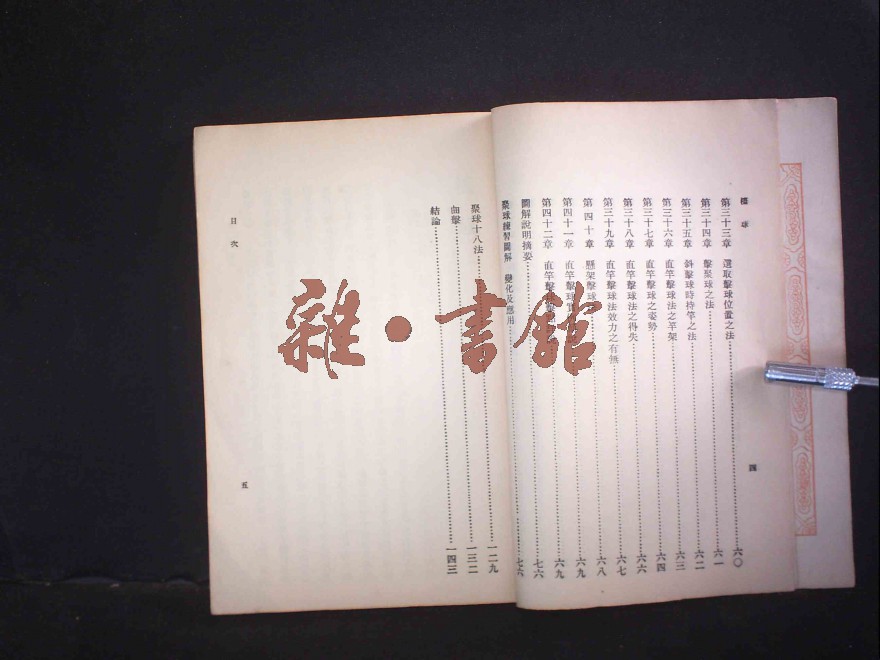 檯球
第三十三章 選取擊球位置之法……六〇
第三十四章 擊聚球之法……六一
第三十五章 斜擊球時持竿之法……六二
第三十六章 直竿擊球法之竿架……六三
第三十七章 直竿擊球之姿勢……六四
第三十八章 直竿擊球法之得失……六六
第三十九章 直竿擊球法效力之有無……六七
第四十章 懸架擊球……六八
第四十一章 直竿擊球……六九
第四十二章 直竿擊球……六九
圖解說明摘要……七六
聚球練習圖解 變化及應用……七六
四
聚球十八法……一二九
曲擊……一三二
結論……一四三
目次
五
雜·書館